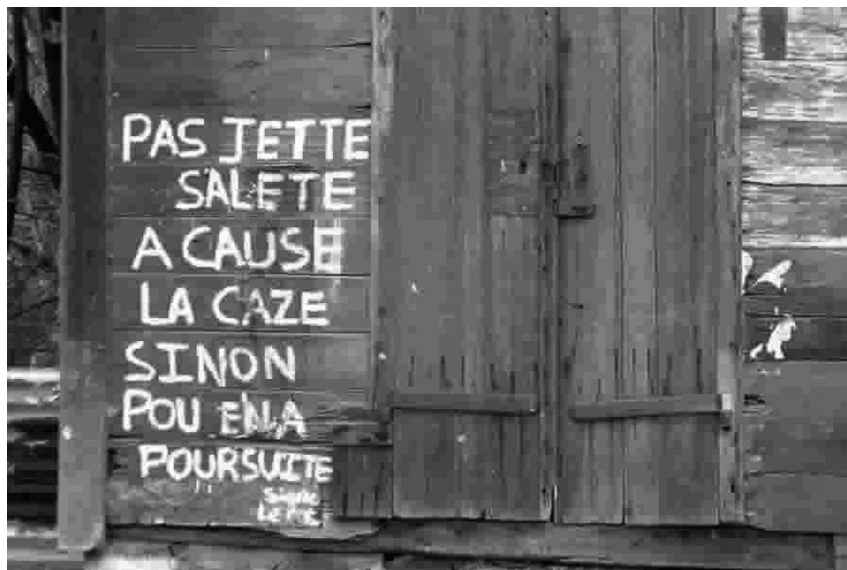 PAS JETTE
SALETE
A CAUSE
LA CAZE
SINON
POU ENA
POURSUITE
Signé